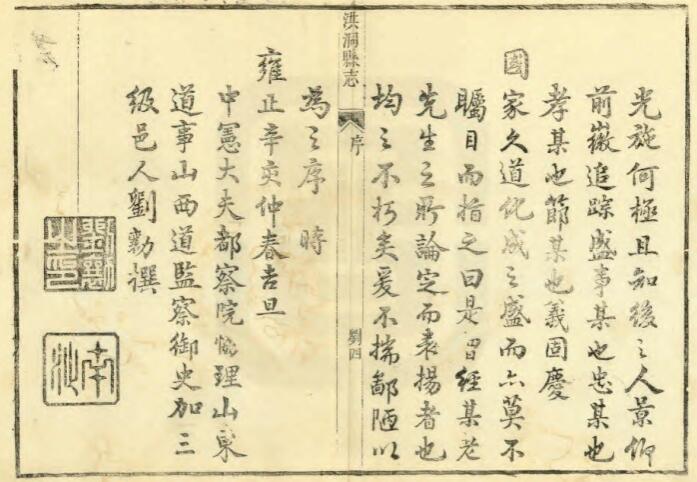 光施何極且知後之人景仰
前徽追踪盛事某也忠某也
孝某也節某也義固慶
國家久道化成之盛而亦莫不
矚目而指之曰是曾經某老
先生之所論定而表揚者也
均之不朽矣爰不揣鄙陋以
洪洞縣志
序
劉四
為之序 時
雍正辛亥仲春吉旦
中憲大夫都察院協理山東
道事山西道監察御史加三
級邑人劉勷譔